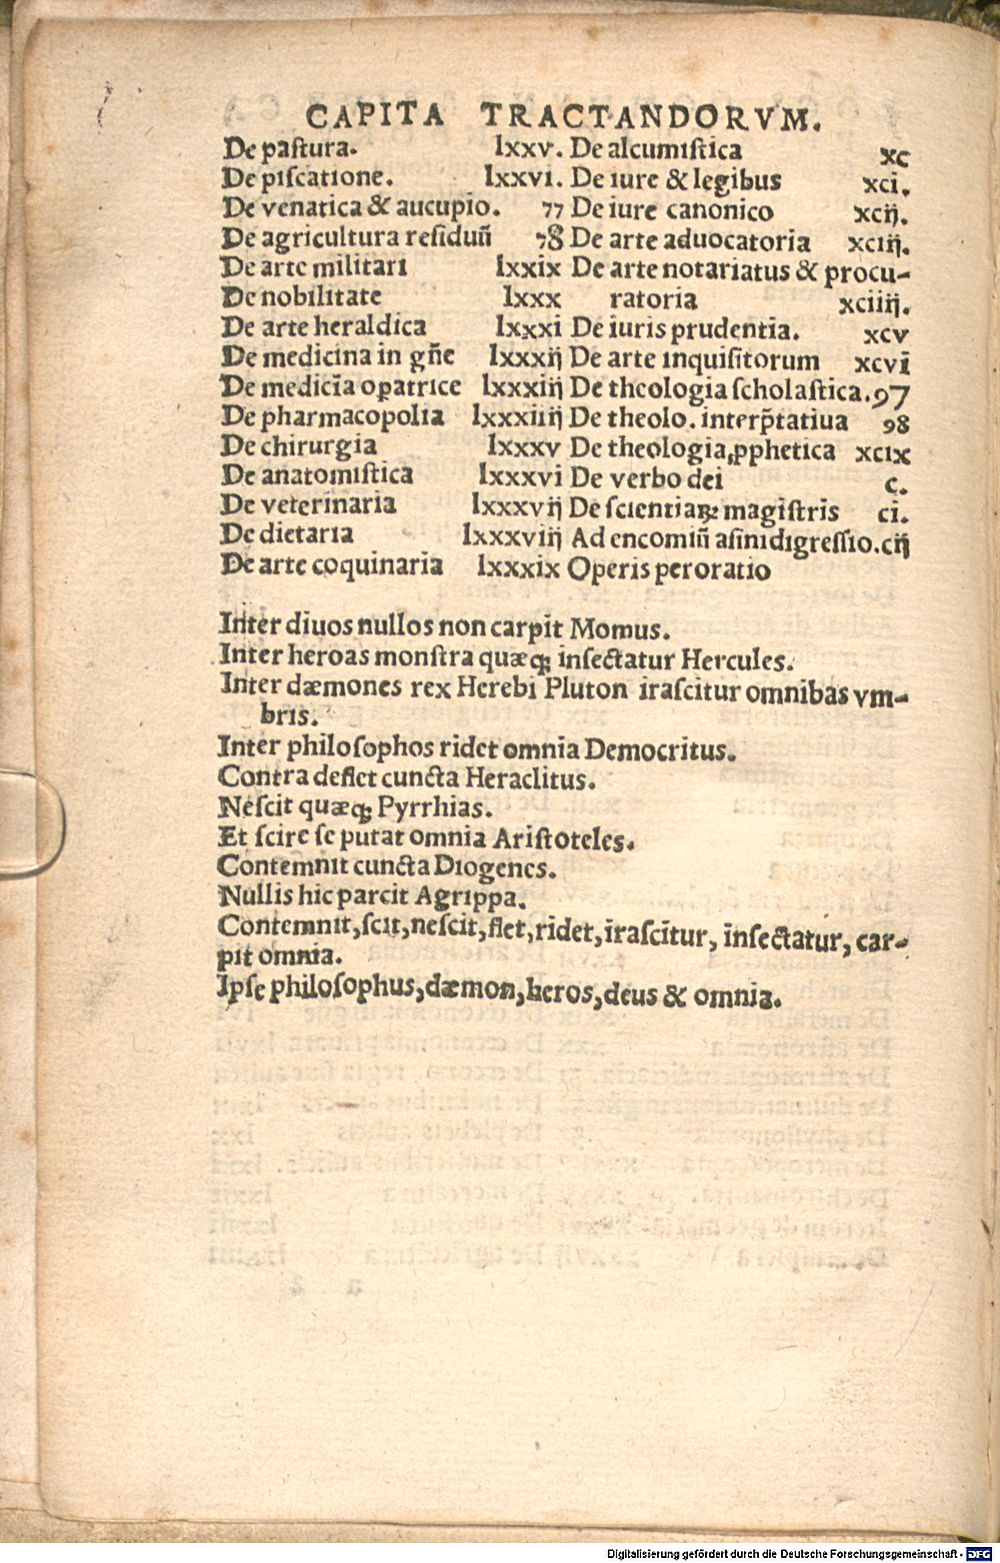 CAPITA TRACTANDORVM.
De paſtura. lxxv.
De piſcatione. lxxvi.
De venatica & aucupio. 77
De agricultura reſiduū 78
De arte militari lxxix
De nobilitate lxxx
De arte heraldica lxxxi
De medicina in gñe lxxxij
De medicīa opatrice lxxxiij
De pharmacopolia lxxxiiij
De chirurgia lxxxv
De anatomiſtica lxxxvi
De veterinaria lxxxvij
De dietaria lxxxviij
De arte coquinaria lxxxix
De alcumiſtica xc
De iure & legibus xci.
De iure canonico xcij.
De arte aduocatoria xciij.
De arte notariatus & procu-
ratoria xciiij.
De iuris prudentia. xcv
De arte inquiſitorum xcvi
De theologia ſcholaſtica. 97
De theolo. interp̃tatiua 98
De theologia ꝓphetica xcix
De verbo dei c.
De ſcientiaꝝ magiſtris ci.
Ad encomiū aſini digreſſio. cij
Operis peroratio
Inter diuos nullos non carpit Momus.
Inter heroas monſtra quæq; inſectatur Hercules.
Inter dæmones rex Herebi Pluton iraſcitur omnibas vm-
bris.
Inter philoſophos ridet omnia Democritus.
Contra deflet cuncta Heraclitus.
Neſcit quæq; Pyrrhias.
Et ſcire ſe putat omnia Ariſtoteles.
Contemnit cuncta Diogenes.
Nullis hic parcit Agrippa.
Contemnit, ſcit, neſcit, flet, ridet, iraſcitur, inſectatur, car-
pit omnia.
Ipſe philoſophus, dæmon, heros, deus & omnia.
Digitalisierung gefördert durch die Deutsche Forschungsgemeinschaft - DFG